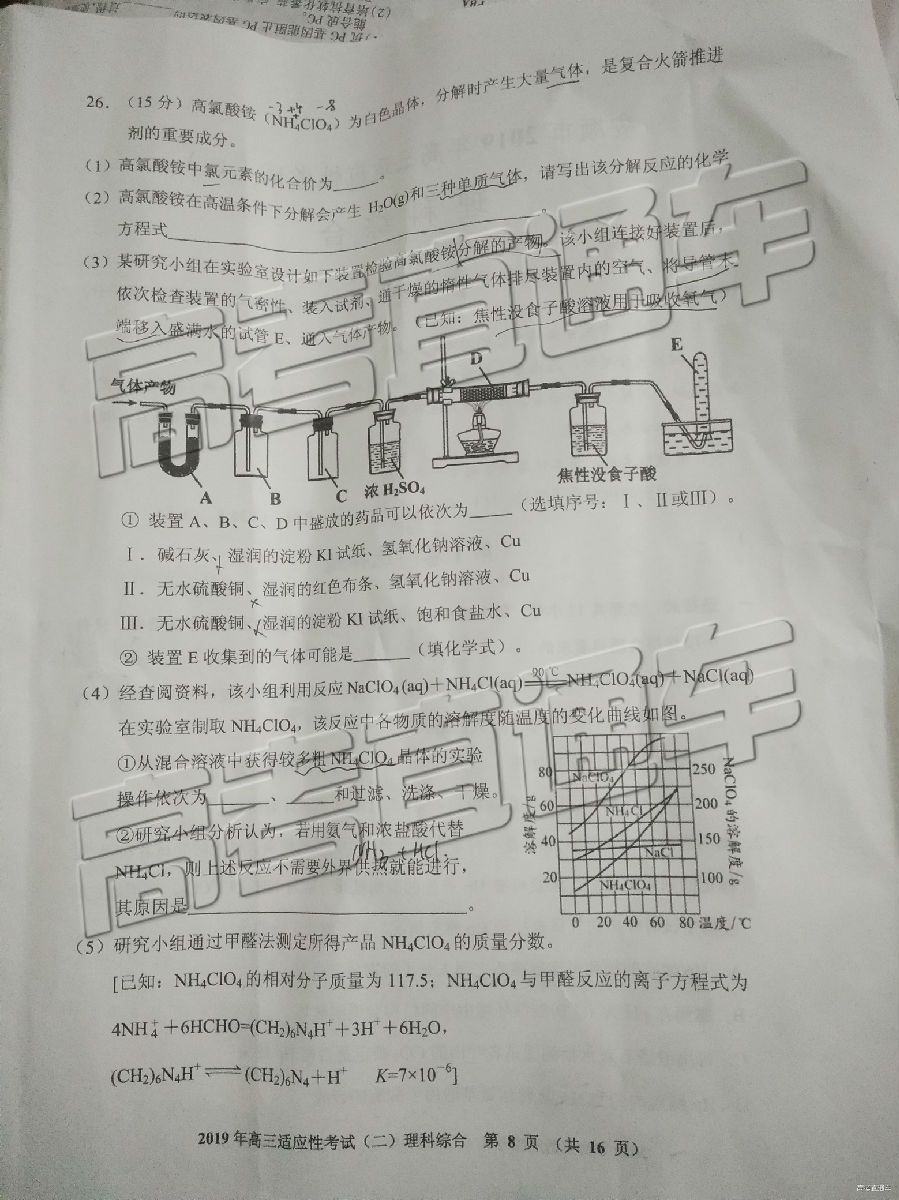 26．（15 分）高氯酸铵（NH₄ClO₄）为白色晶体，分解时产生大量气体，是复合火箭推进
-3 +4 -8
剂的重要成分。
（1）高氯酸铵中氯元素的化合价为_____。
（2）高氯酸铵在高温条件下分解会产生 H₂O(g)和三种单质气体，请写出该分解反应的化学
方程式_____。
（3）某研究小组在实验室设计如下装置检验高氯酸铵分解的产物。该小组连接好装置后，
依次检查装置的气密性、装入试剂、通干燥的惰性气体排尽装置内的空气、将导管末
端移入盛满水的试管 E、通入气体产物。（已知：焦性没食子酸溶液用于吸收氧气）
气体产物
A
B
C
浓 H₂SO₄
D
焦性没食子酸
E
① 装置 A、B、C、D 中盛放的药品可以依次为_____（选填序号：Ⅰ、Ⅱ或Ⅲ）。
Ⅰ．碱石灰、湿润的淀粉 KI 试纸、氢氧化钠溶液、Cu
Ⅱ．无水硫酸铜、湿润的红色布条、氢氧化钠溶液、Cu
Ⅲ．无水硫酸铜、湿润的淀粉 KI 试纸、饱和食盐水、Cu
② 装置 E 收集到的气体可能是_____（填化学式）。
（4）经查阅资料，该小组利用反应 NaClO₄(aq)＋NH₄Cl(aq) 90 ℃ NH₄ClO₄(aq)＋NaCl(aq)
在实验室制取 NH₄ClO₄，该反应中各物质的溶解度随温度的变化曲线如图。
①从混合溶液中获得较多粗 NH₄ClO₄ 晶体的实验
操作依次为_____、_____和过滤、洗涤、干燥。
②研究小组分析认为，若用氨气和浓盐酸代替
NH₃ + HCl
NH₄Cl，则上述反应不需要外界供热就能进行，
其原因是_____。
溶解度/g
80
60
40
20
NaClO₄
NH₄Cl
NaCl
NH₄ClO₄
250
200
150
100
NaClO₄ 的溶解度/g
0 20 40 60 80 温度/℃
（5）研究小组通过甲醛法测定所得产品 NH₄ClO₄ 的质量分数。
[已知：NH₄ClO₄ 的相对分子质量为 117.5；NH₄ClO₄ 与甲醛反应的离子方程式为
4NH₄⁺＋6HCHO=(CH₂)₆N₄H⁺＋3H⁺＋6H₂O，
(CH₂)₆N₄H⁺⇌(CH₂)₆N₄＋H⁺ K=7×10⁻⁶]
2019 年高三适应性考试（二）理科综合 第 8 页 （共 16 页）
高考直通车
高考直通车